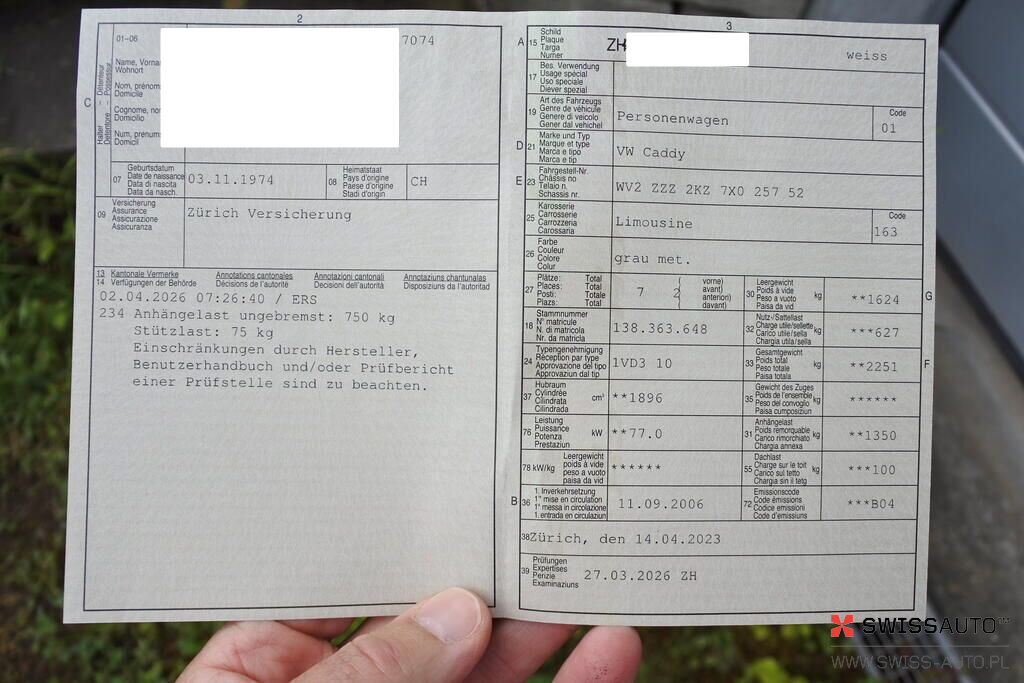 2
01-06
7074
Name, Vorna
Wohnort
Nom, prénom
Domicile
Cognome, nor
Domicilio
Num, prenum
Domicil
C
Halter – Détenteur
Detentore – Possessur
07
Geburtsdatum
Date de naissance
Data di nascita
Data da nasch.
03.11.1974
08
Heimatstaat
Pays d'origine
Paese d'origine
Stadi d'origin
CH
09
Versicherung
Assurance
Assicurazione
Assicuranza
Zürich Versicherung
13 Kantonale Vermerke Annotations cantonales Annotazioni cantonali Annotaziuns chantunalas
14 Verfügungen der Behörde Décisions de l'autorité Decisioni dell'autorità Disposiziuns da l'autoritad
02.04.2026 07:26:40 / ERS
234 Anhängelast ungebremst: 750 kg
Stützlast: 75 kg
Einschränkungen durch Hersteller,
Benutzerhandbuch und/oder Prüfbericht
einer Prüfstelle sind zu beachten.
3
A 15
Schild
Plaque
Targa
Numer
ZH
weiss
17
Bes. Verwendung
Usage spécial
Uso speciale
Diever spezial
19
Art des Fahrzeugs
Genre de véhicule
Genere di veicolo
Gener dal vehichel
Personenwagen
Code
01
D 21
Marke und Typ
Marque et type
Marca e tipo
Marca e tip
VW Caddy
E 23
Fahrgestell-Nr.
Châssis no
Telaio n.
Schassis nr.
WV2 ZZZ 2KZ 7X0 257 52
25
Karosserie
Carrosserie
Carrozzeria
Carossaria
Limousine
Code
163
26
Farbe
Couleur
Colore
Colur
grau met.
27
Plätze: Total
Places: Total
Posti: Totale
Plazs: Total
7 2(
vorne)
avant)
anteriori)
davant)
30
Leergewicht
Poids à vide
Peso a vuoto
Paisa da vid
kg
**1624
G
18
Stammnummer
N° matricule
N. di matricola
Nr. da matricla
138.363.648
32
Nutz-/Sattellast
Charge utile/sellette
Carico utile/sella
Chargia utila/sella
kg
***627
24
Typengenehmigung
Réception par type
Approvazione del tipo
Approvaziun dal tip
1VD3 10
33
Gesamtgewicht
Poids total
Peso totale
Paisa totala
kg
**2251
F
37
Hubraum
Cylindrée
Cilindrata
Cilindrada
cm³
**1896
35
Gewicht des Zuges
Poids de l'ensemble
Peso del convoglio
Paisa cumposiziun
kg
******
76
Leistung
Puissance
Potenza
Prestaziun
kW
**77.0
31
Anhängelast
Poids remorquable
Carico rimorchiato
Chargia annexa
kg
**1350
78 kW/kg
Leergewicht
poids à vide
peso a vuoto
paisa da vid
******
55
Dachlast
Charge sur le toit
Carico sul tetto
Chargia sin il tetg
kg
***100
B 36
1. Inverkehrsetzung
1re mise en circulation
1a messa in circolazione
1. entrada en circulaziun
11.09.2006
72
Emissionscode
Code émissions
Codice emissioni
Code d'emissiuns
***B04
38 Zürich, den 14.04.2023
39
Prüfungen
Expertises
Perizie
Examinaziuns
27.03.2026 ZH
SWISSAUTO
WWW.SWISS-AUTO.PL